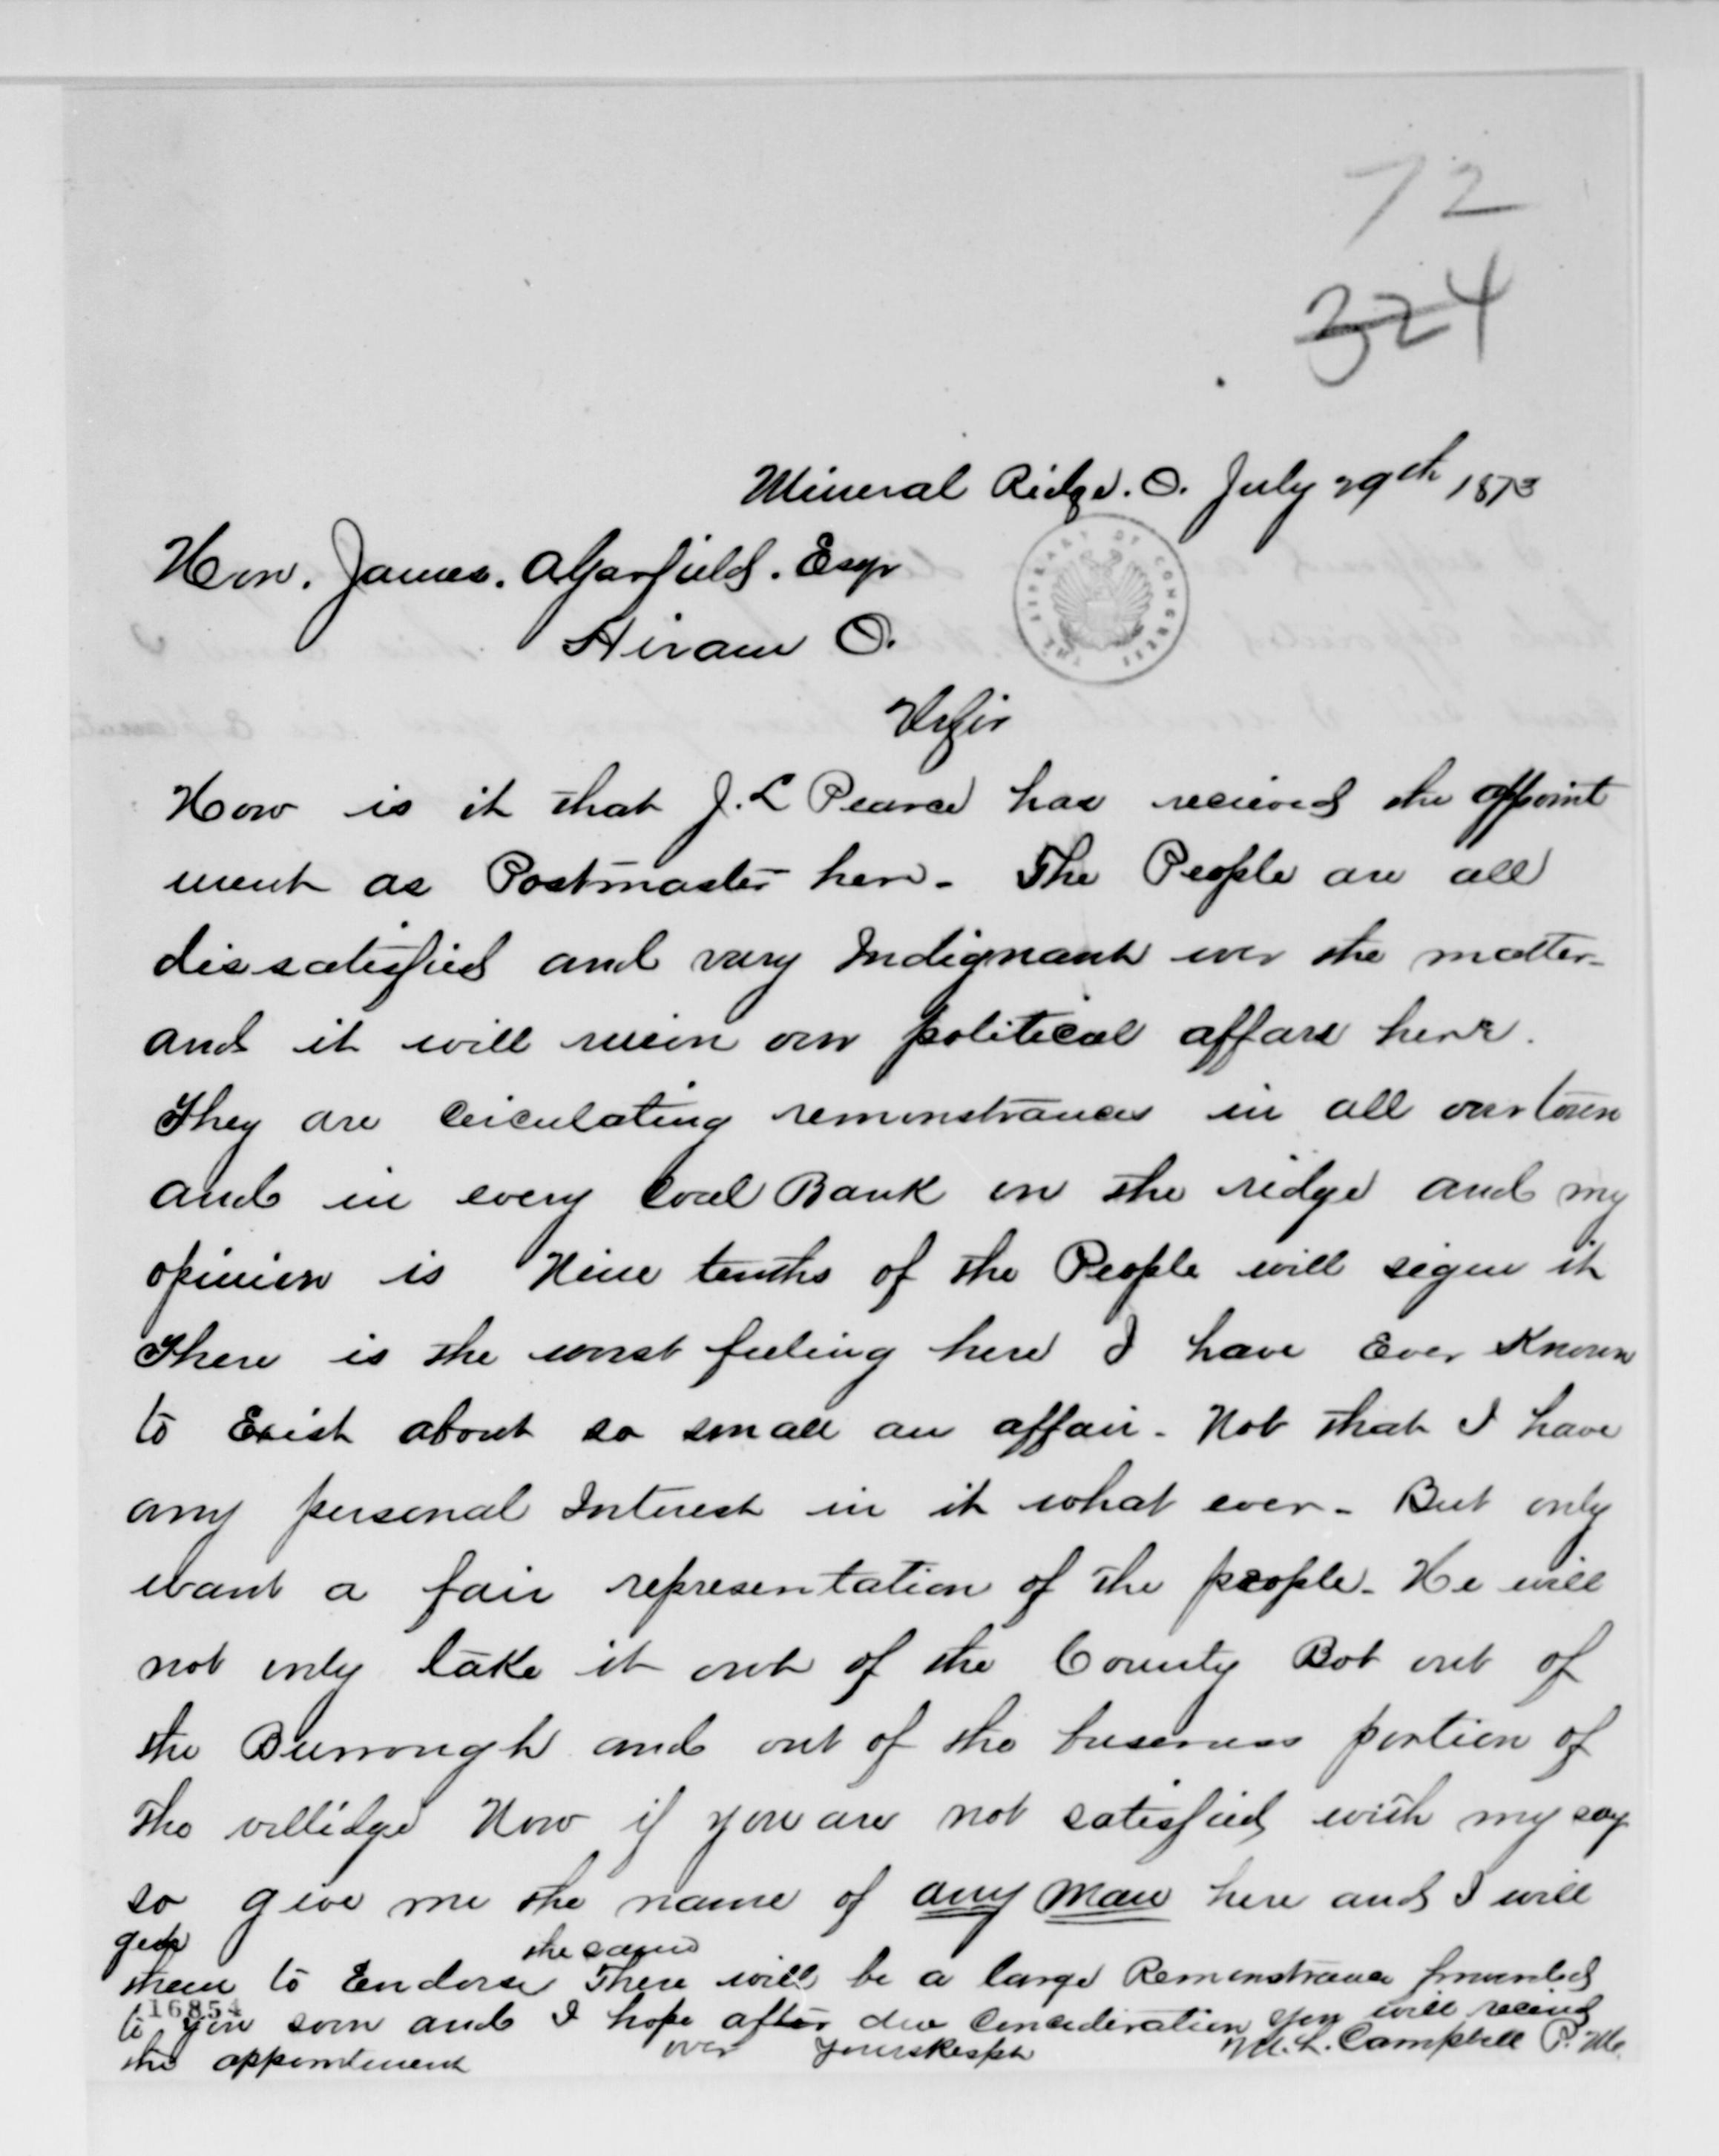 72
324
Mineral Ridge. O. July 29th 1873
Hon. James. A Garfield. Esqr
Hiram O.
THE LIBRARY OF CONGRESS
Dr Sir
How is it that J. L Pearce has recieved the appoint
ment as Postmaster here - The People are all
dissatisfied and very Indignant over the matter -
and it will ruien our political affars here.
They are circulating remonstrances in all our town
and in every Coal Bank on the ridge and my
opinion is Nine tenths of the People will sigen it
There is the worst feeling here I have Ever Known
to Exist about so small an affair - Not that I have
any personal Interest in it what ever - But only
want a fair representation of the people - He will
not only take it out of the County Bot out of
the Burrough and out of the buseness portion of
the villidge Now if you are not satisfied with my say
so give me the name of any man here and I will
get
the same
them to Endorse There will be a large Remonstrance forwarded
16854
to you soon and I hope after due Concideration you will recind
the appointment over Yours Respt M. L. Campbell P. M.